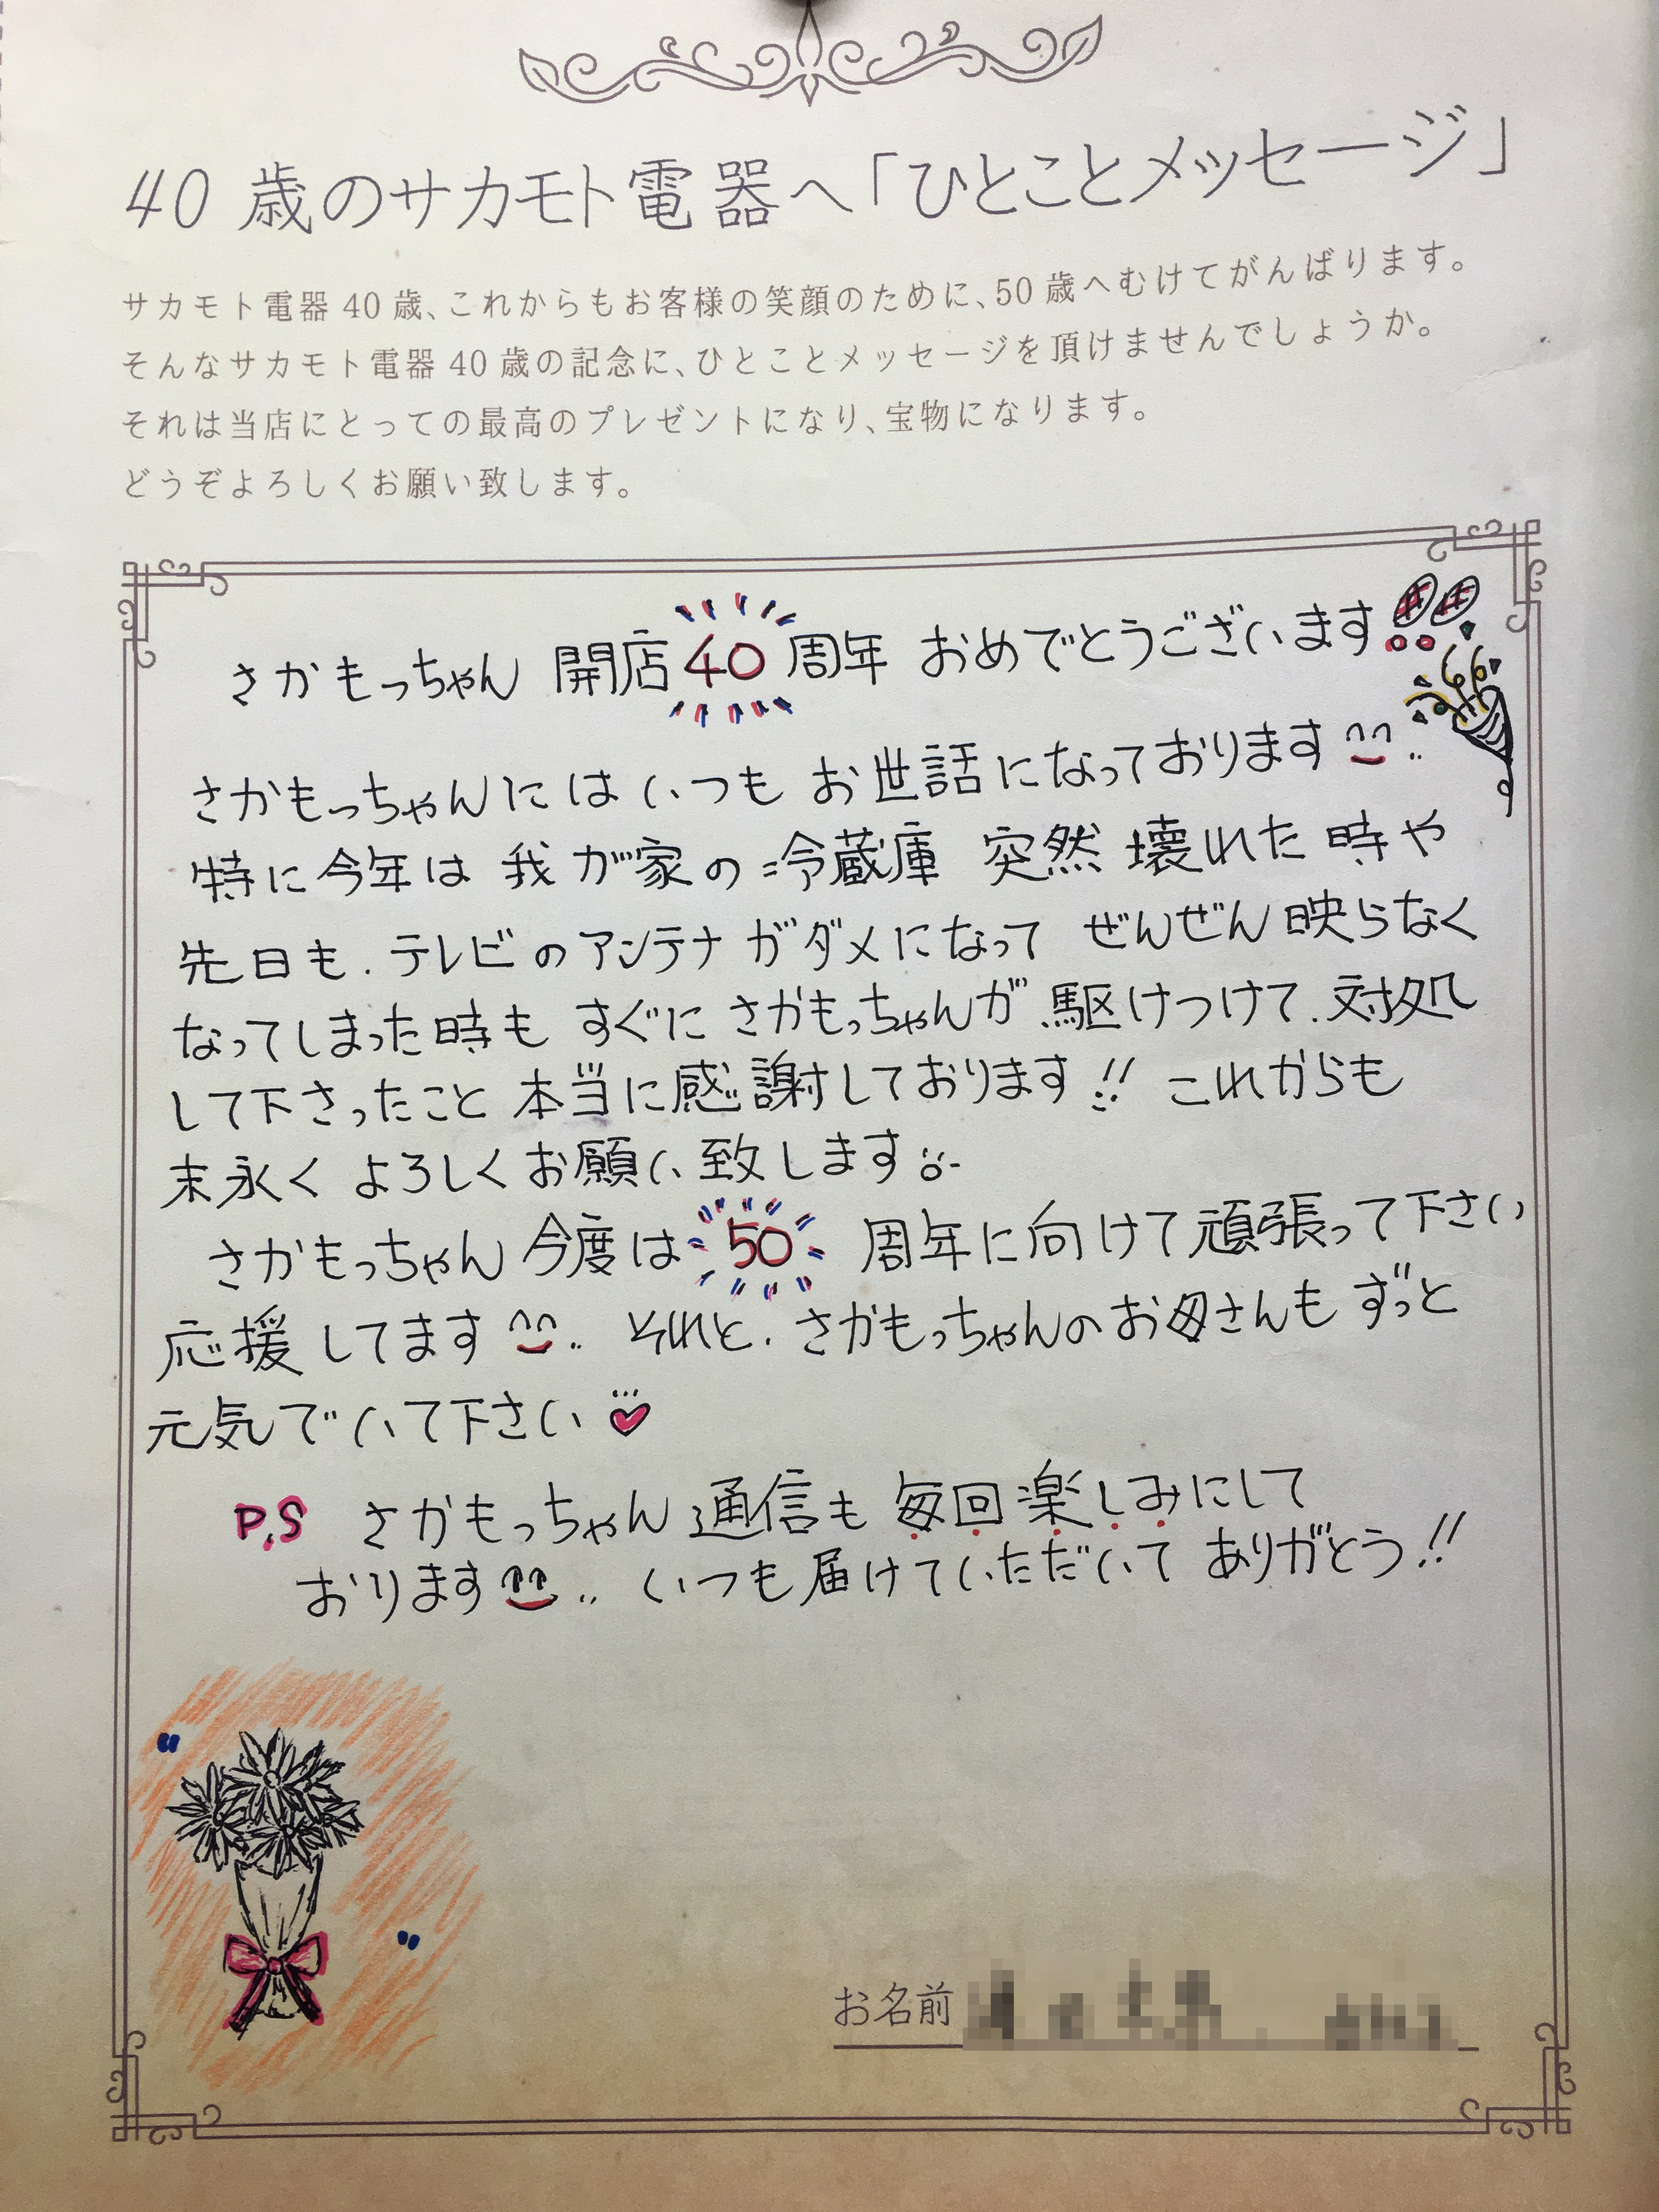 40歳のサカモト電器へ「ひとことメッセージ」
サカモト電器40歳、これからもお客様の笑顔のために、50歳へむけてがんばります。
そんなサカモト電器40歳の記念に、ひとことメッセージを頂けませんでしょうか。
それは当店にとっての最高のプレゼントになり、宝物になります。
どうぞよろしくお願い致します。
さかもっちゃん 開店40周年 おめでとうございます!!
さかもっちゃんにはいつも お世話になっております
特に今年は 我が家の冷蔵庫 突然 壊れた 時や
先日も、テレビのアンテナがダメになって ぜんぜん映らなく
なってしまった時も すぐに さかもっちゃんが、駆けつけて、対処
して下さったこと 本当に感謝しております!! これからも
末永く よろしくお願い致します。
さかもっちゃん 今度は 50 周年に向けて頑張って下さい
応援してます それと、さかもっちゃんのお母さんも ずっと
元気でいて下さい♡
P.S さかもっちゃん通信も 毎回楽しみにして
おります いつも届けていただいて ありがとう!!
お名前